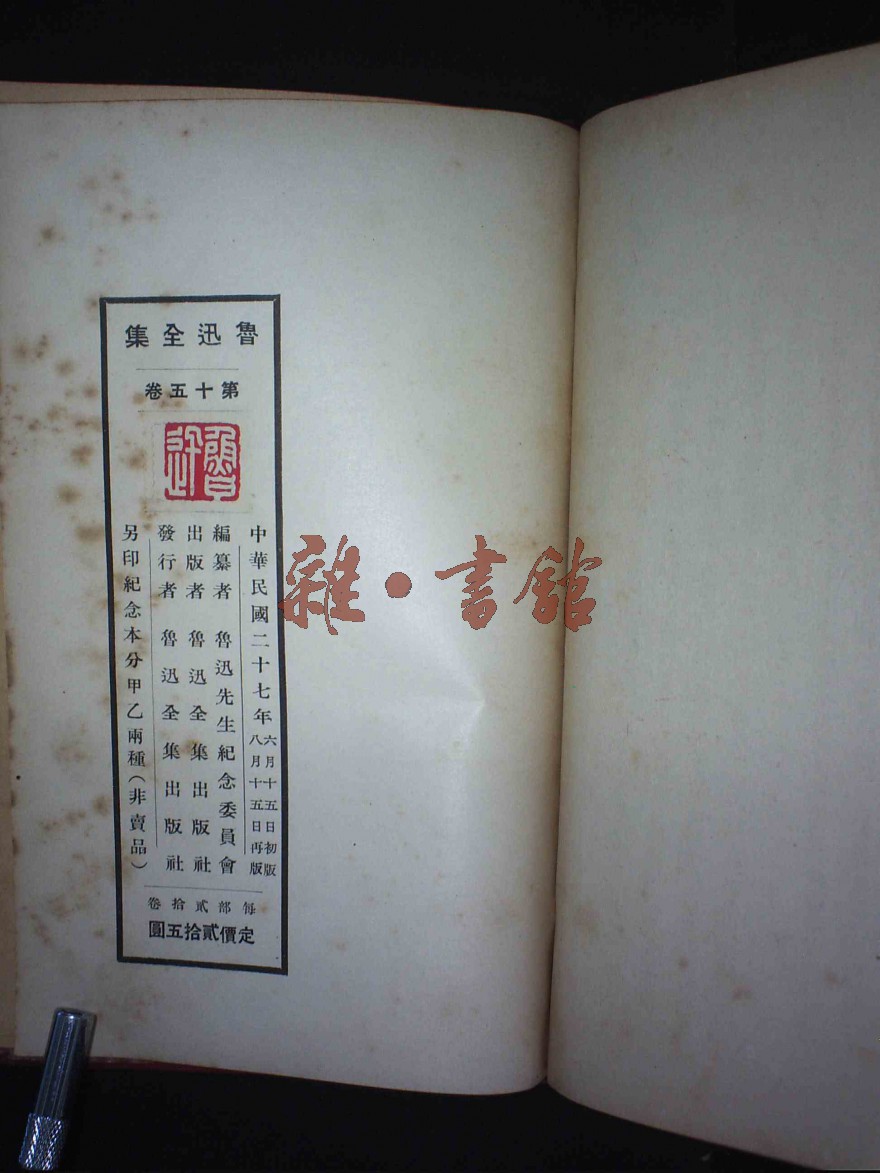 魯迅全集
第十五卷
魯迅
中華民國二十七年六月十五日初版
八月十五日再版
編纂者 魯迅先生紀念委員會
出版者 魯迅全集出版社
發行者 魯迅全集出版社
另印紀念本分甲乙兩種(非賣品)
每部貳拾卷
定價貳拾五圓
雜•書館